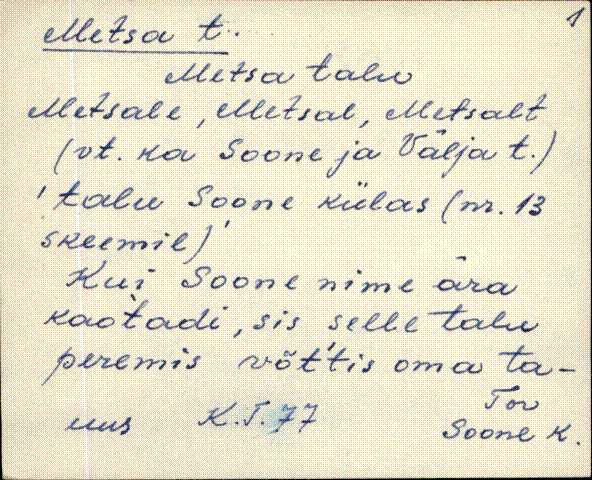 1
Metsa t.
Metsa talu
Metsale, Metsal, Metsalt
(vt. ka Soone ja Välja t.)
'talu Soone külas (nr. 13
skeemil)'
Kui Soone nime ära
kaotadi, sis selle talu
peremis võt't'is oma ta-
Tor
uus K.T. 77 Soone k.